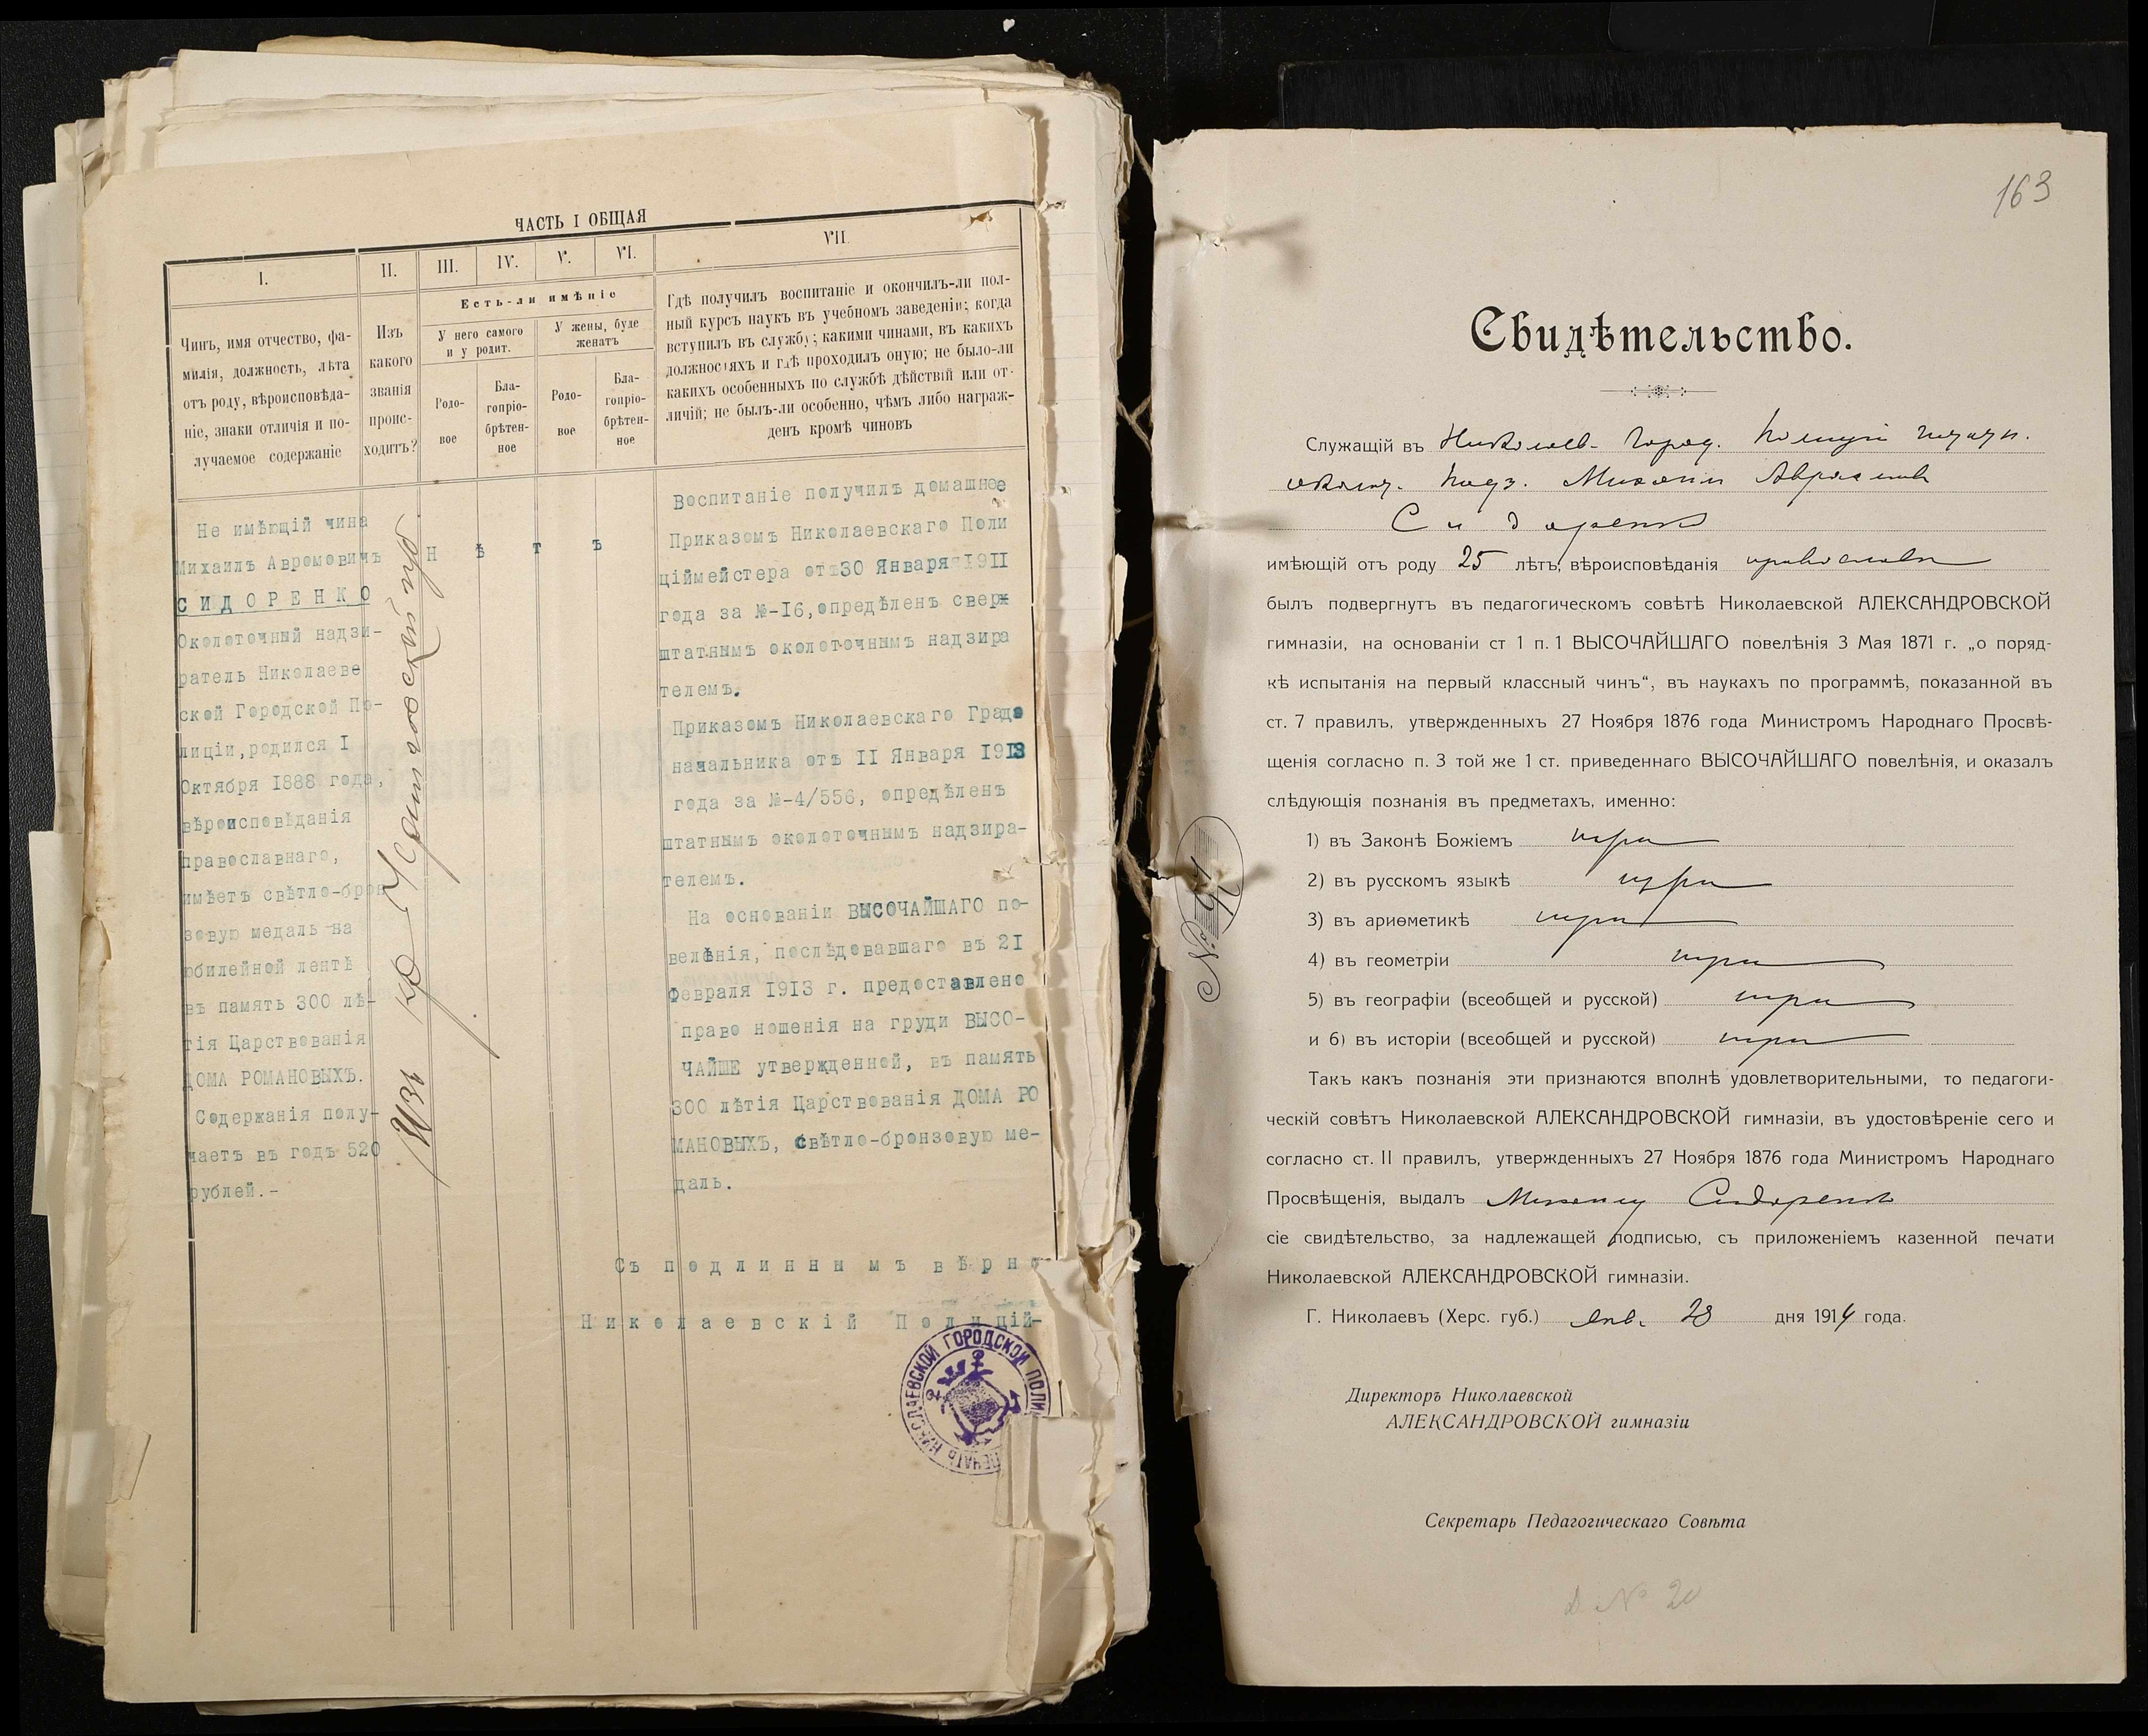 ЧАСТЬ I ОБЩАЯ
I.
II.
III.
IV.
V.
VI.
VII.
Чинъ, имя отчество, фа-
милія, должность, лѣта
отъ роду, вѣроисповѣда-
ніе, знаки отличія и по-
лучаемое содержаніе
Изъ
какого
званія
проис-
ходитъ?
Есть-ли имѣніе
У него самого
и у родит.
У жены, буде
женатъ
Родо-
вое
Бла-
гопріо-
брѣтен-
ное
Родо-
вое
Бла-
гопріо-
брѣтен-
ное
Гдѣ получилъ воспитаніе и окончилъ-ли пол-
ный курсъ наукъ въ учебномъ заведеніи; когда
вступилъ въ службу; какими чинами, въ какихъ
должностяхъ и гдѣ проходилъ оную; не было-ли
какихъ особенныхъ по службѣ дѣйствій или от-
личій; не былъ-ли особенно, чѣмъ либо награж-
денъ кромѣ чиновъ
Не имѣющій чина
Михаилъ Авромовичъ
СИДОРЕНКО
Околоточный надзи-
ратель Николаев
ской Городской По-
лиціи,родился I
Октября 1888 года,
вѣроисповѣданія
православнаго,
имѣетъ свѣтло-брон
зовую медаль на
юбилейной лентѣ
въ память 300 лѣ-
тія Царствованія
ДОМА РОМАНОВЫХЪ.
Содержанія полу-
чаетъ въ годъ 520
рублей.-
Изъ
Нѣтъ
Воспитаніе получилъ домашнее
Приказомъ Николаевскаго Поли
ціймейстера отъ 30 Января 1911
года за №-16,опредѣленъ сверх
штатнымъ околоточнымъ надзира
телемъ.
Приказомъ Николаевскаго Градо
начальника отъ II Января 1913
года за №-4/556, опредѣленъ
штатнымъ околоточнымъ надзира-
телемъ.
На основаніи ВЫСОЧАЙШАГО по-
велѣнія, послѣдовавшаго въ 21
Февраля 1913 г. предоставлено
право ношенія на груди ВЫСО-
ЧАЙШЕ утвержденной, въ память
300 лѣтія Царствованія ДОМА РО
МАНОВЫХЪ, свѣтло-бронзовую ме-
даль.
Съ подлиннымъ вѣрно
Николаевскій Полицій-
ПЕЧАТЬ НИКОЛАЕВСКОЙ ГОРОДСКОЙ ПОЛИ
163
Свидѣтельство.
Служащій въ Николаев. Город. Полиціи
околот. надз. Михаилъ Аврамовъ
Сидоренко
имѣющій отъ роду 25 лѣтъ, вѣроисповѣданія православн
былъ подвергнутъ въ педагогическомъ совѣтѣ Николаевской АЛЕКСАНДРОВСКОЙ
гимназіи, на основаніи ст 1 п. 1 ВЫСОЧАЙШАГО повелѣнія 3 Мая 1871 г. „о поряд-
кѣ испытанія на первый классный чинъ“, въ наукахъ по программѣ, показанной въ
ст. 7 правилъ, утвержденныхъ 27 Ноября 1876 года Министромъ Народнаго Просвѣ-
щенія согласно п. 3 той же 1 ст. приведеннаго ВЫСОЧАЙШАГО повелѣнія, и оказалъ
слѣдующія познанія въ предметахъ, именно:
1) въ Законѣ Божіемъ три
2) въ русскомъ языкѣ три
3) въ ариѳметикѣ три
4) въ геометріи три
5) въ географіи (всеобщей и русской) три
и 6) въ исторіи (всеобщей и русской) три
Такъ какъ познанія эти признаются вполнѣ удовлетворительными, то педагоги-
ческій совѣтъ Николаевской АЛЕКСАНДРОВСКОЙ гимназіи, въ удостовѣреніе сего и
согласно ст. II правилъ, утвержденныхъ 27 Ноября 1876 года Министромъ Народнаго
Просвѣщенія, выдалъ Михаилу Сидоренко
сіе свидѣтельство, за надлежащей подписью, съ приложеніемъ казенной печати
Николаевской АЛЕКСАНДРОВСКОЙ гимназіи.
Г. Николаевъ (Херс. губ.) Янв. 28 дня 1914 года.
Директоръ Николаевской
АЛЕКСАНДРОВСКОЙ гимназіи
Секретарь Педагогическаго Совѣта
№ 20